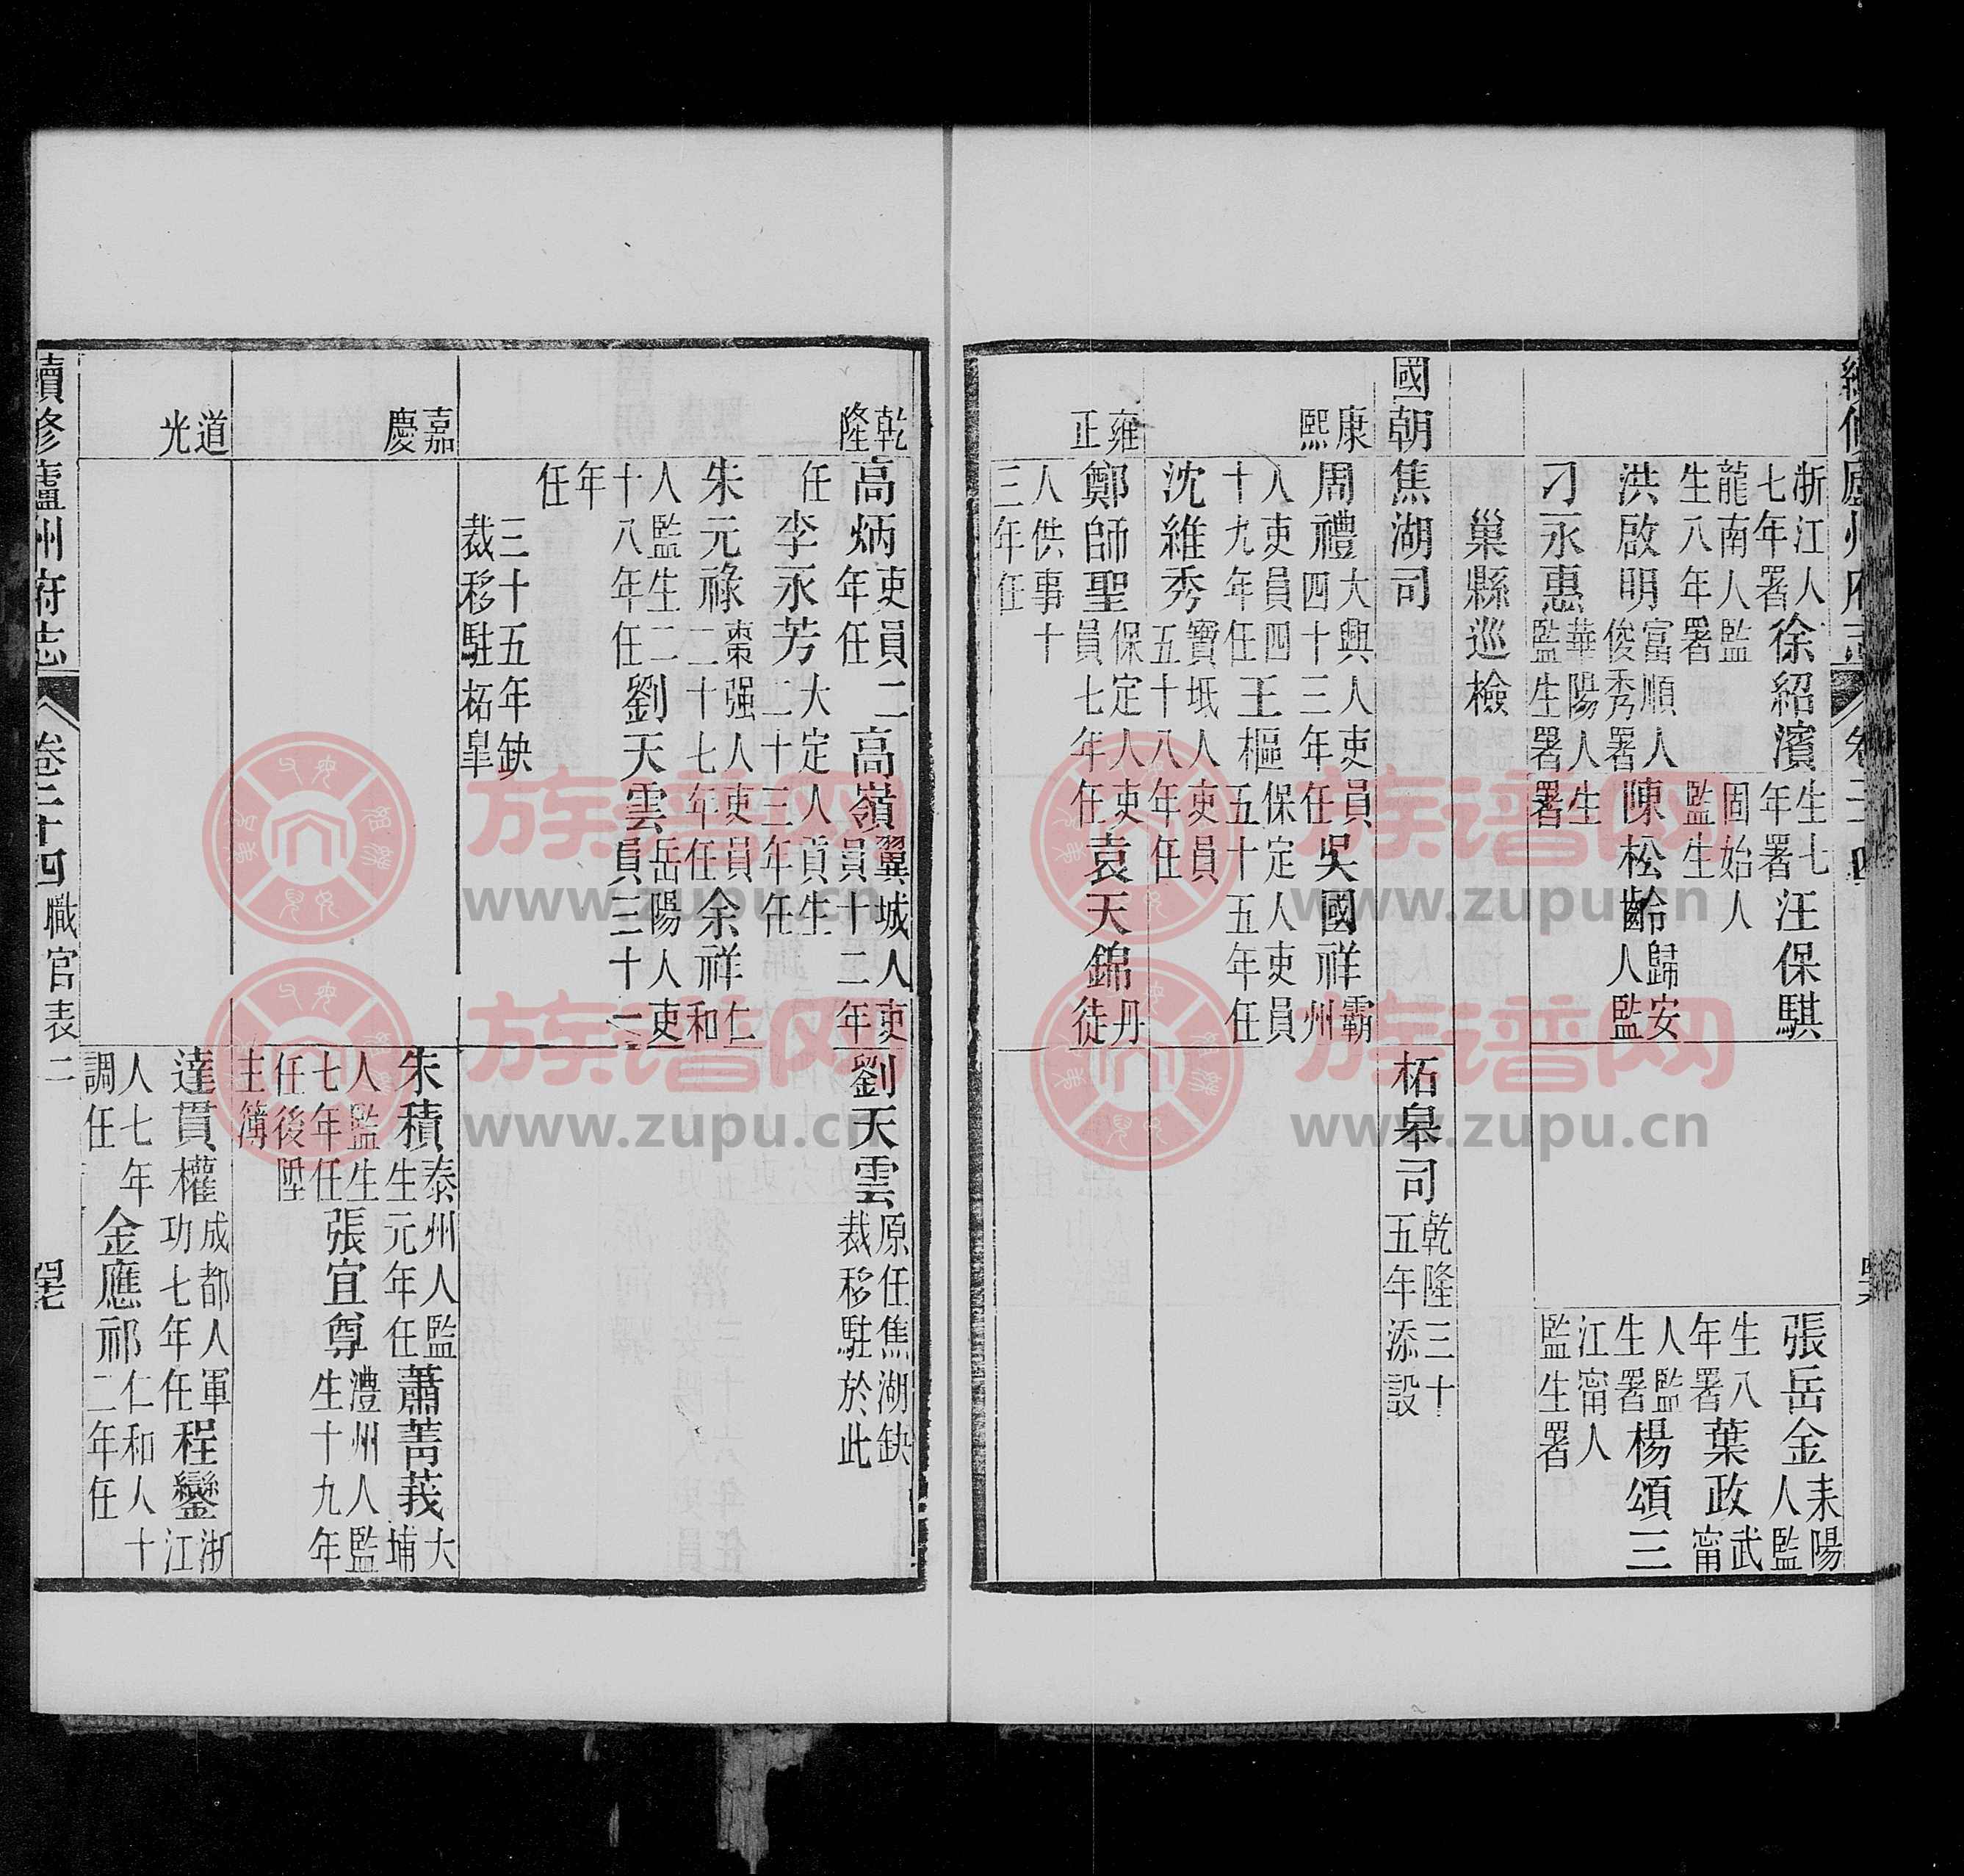 浙江人七年署徐紹濱生七年署汪保騏
龍南人監生八年署
固始人監生
洪啟明富順人俊秀署陳松齡歸安人監生署
刁永惠華陽人監生署
張岳金耒陽人監生八年署葉政武甯人監生署楊頌三江甯人監生署
巢縣巡檢
國朝焦湖司
柘皋司乾隆三十五年添設
康熙
周禮大興人吏員四十三年任吳國祥霸州人吏員四十九年任王樞保定人吏員五十五年任
沈維秀寶坻人吏員五十八年任
雍正
鄭師聖保定人吏員七年任袁天錦丹徒人供事十三年任
乾隆
高炳吏員二年任高嶺翼城人吏員十二年任李永芳大定人貢生二十三年任
朱元祿棗强人吏員二十七年任余祥仁和人監生二十八年任劉天雲岳陽人吏員三十二年任
三十五年缺裁移駐柘皋
劉天雲原任焦湖缺裁移駐於此
嘉慶
朱積泰州人監生元年任蕭菁莪大埔人監生七年任張宜尊澧州人監生十九年任後陞主簿
道光
達貫權成都人軍功七年任程鑾浙江人七年調任金應祁仁和人十二年任
續修廬州府志 卷二十四職官表二 罕
www.zupu.cn
族谱网
www.zupu.cn
族谱网
www.zupu.cn
族谱网
www.zupu.cn
族谱网